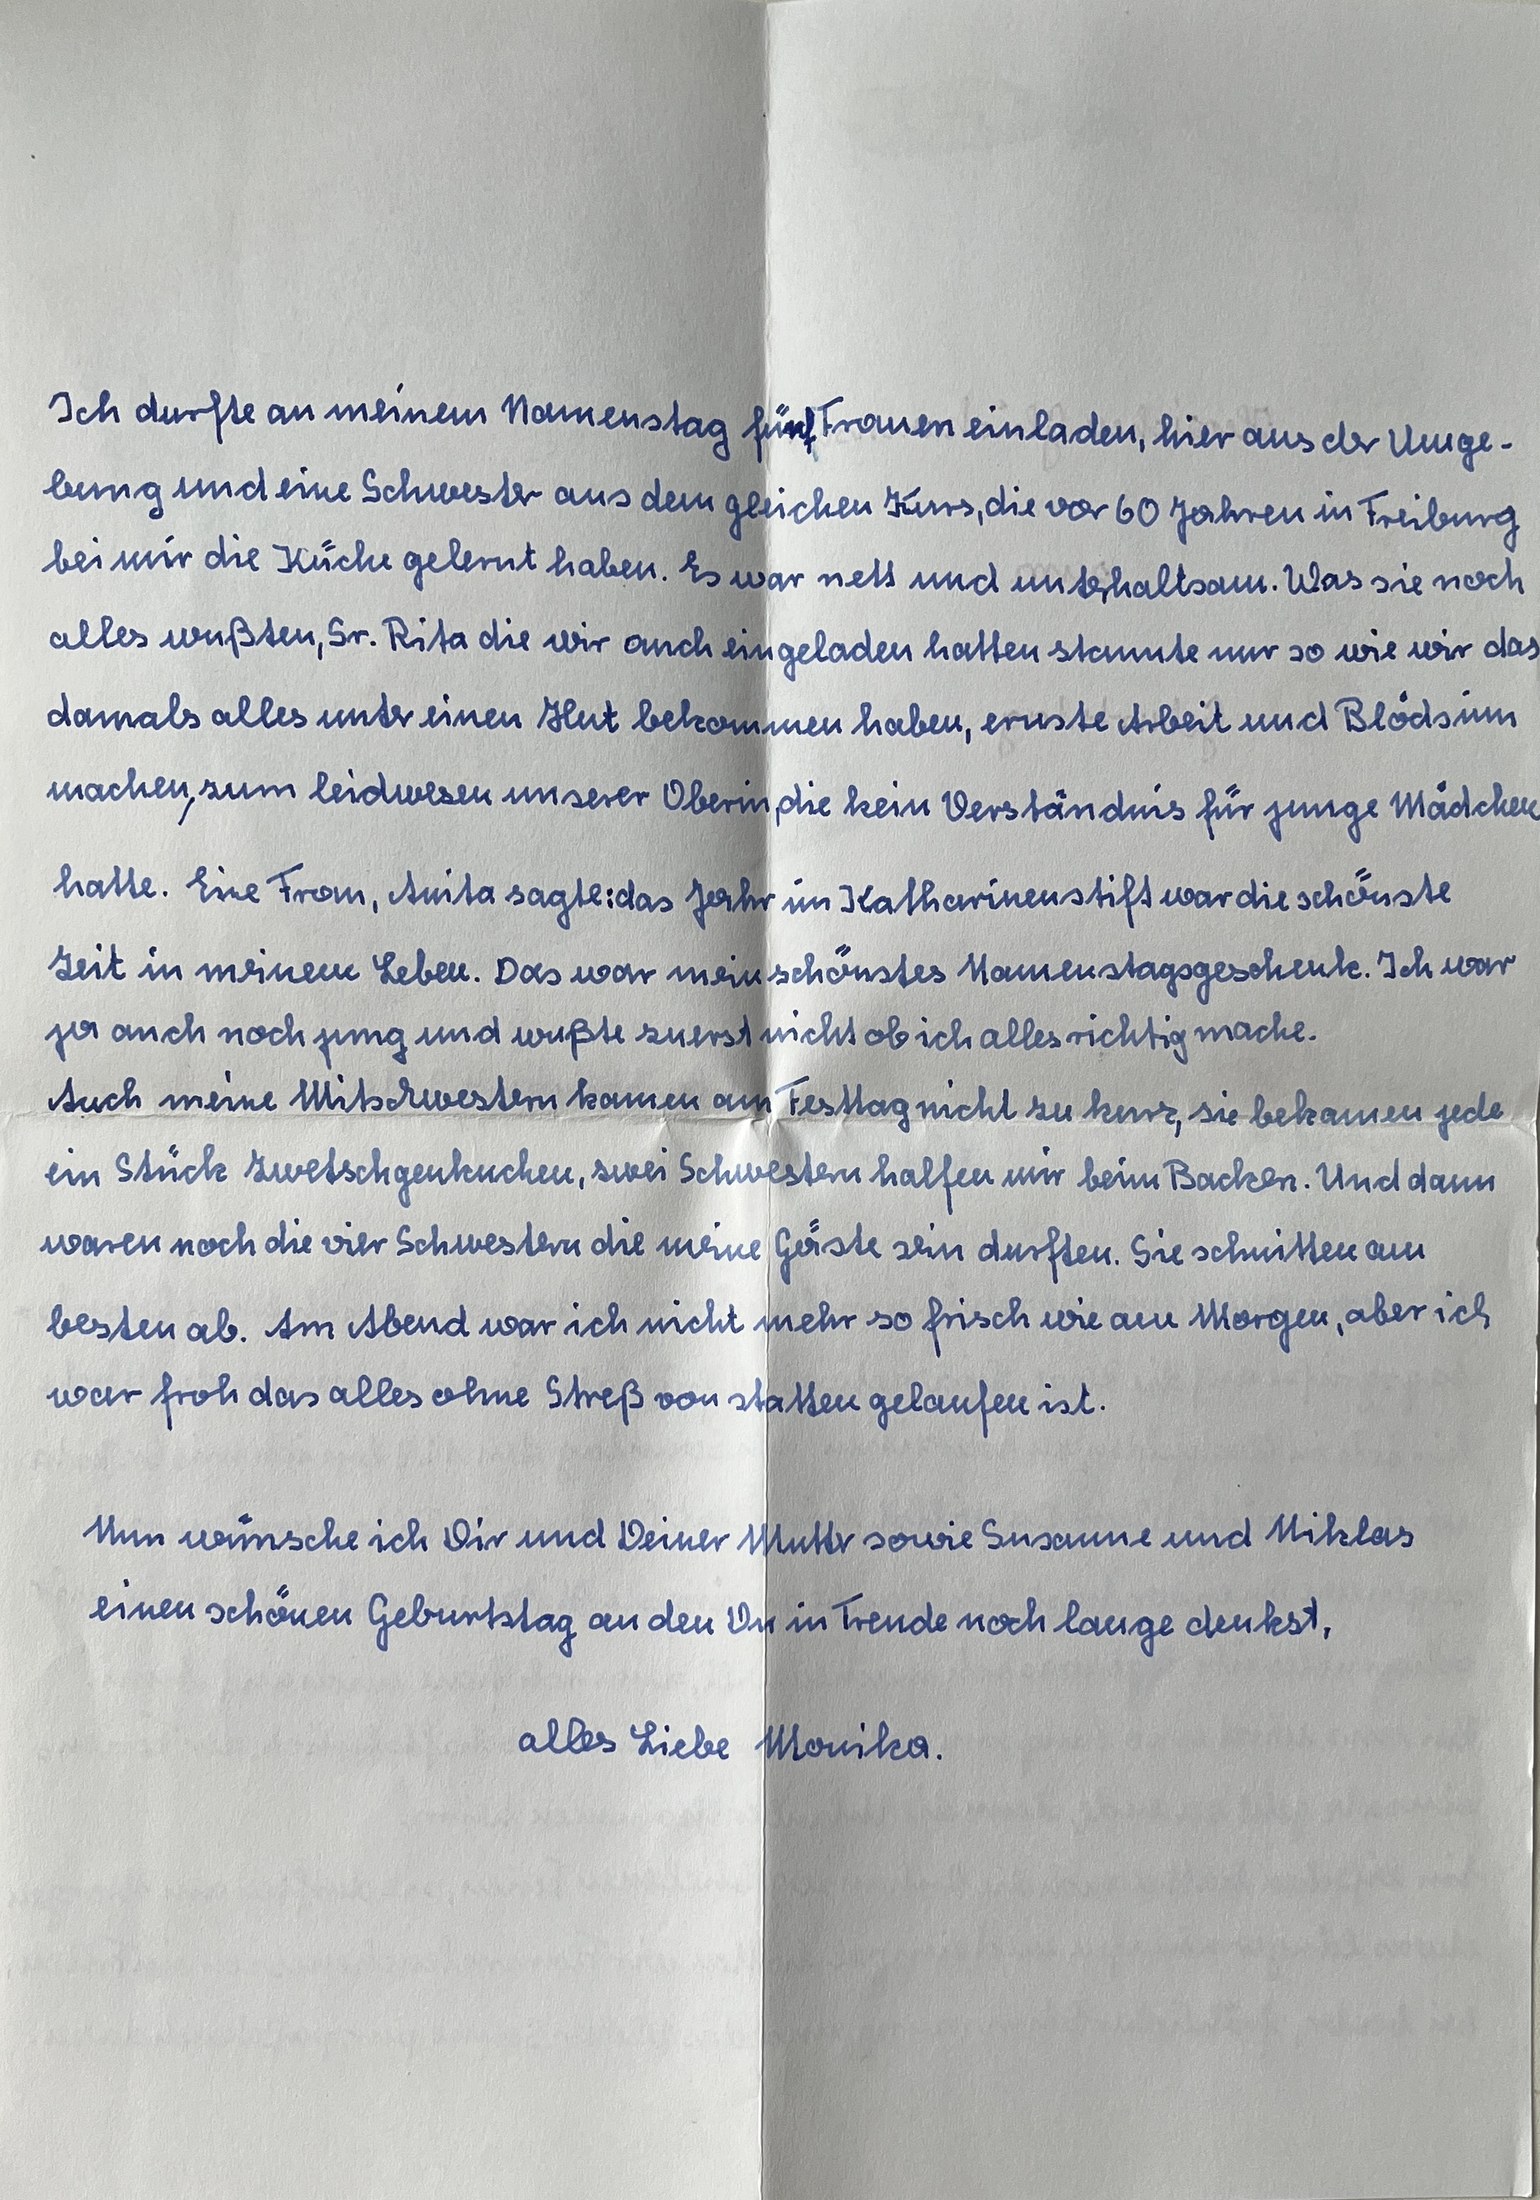 Ich durfte an meinem Namenstag fünf Frauen einladen, hier aus der Umge-
bung und eine Schwester aus dem gleichen Kurs, die vor 60 Jahren in Freiburg
bei mir die Küche gelernt haben. Es war nett und unterhaltsam. Was sie noch
alles wußten, Sr. Rita die wir auch eingeladen hatten staunte nur so wie wir das
damals alles unter einen Hut bekommen haben, ernste Arbeit und Blödsinn
machen, zum leidwesen unserer Oberin, die kein Verständnis für junge Mädchen
hatte. Eine Frau, Anita sagte: das Jahr im Katharinenstift war die schönste
Zeit in meinem Leben. Das war mein schönstes Namenstagsgeschenk. Ich war
ja auch noch jung und wußte zuerst nicht ob ich alles richtig mache.
Auch meine Mitschwestern kamen am Festtag nicht zu kurz, sie bekamen jede
ein Stück Zwetschgenkuchen, zwei Schwestern halfen mir beim Backen. Und dann
waren noch die vier Schwestern die meine Gäste sein durften. Sie schnitten am
besten ab. Am Abend war ich nicht mehr so frisch wie am Morgen, aber ich
war froh das alles ohne Streß von statten gelaufen ist.
Nun wünsche ich Dir und Deiner Mutter sowie Susanne und Niklas
einen schönen Geburtstag an den Du in Freude noch lange denkst,
alles Liebe Monika.